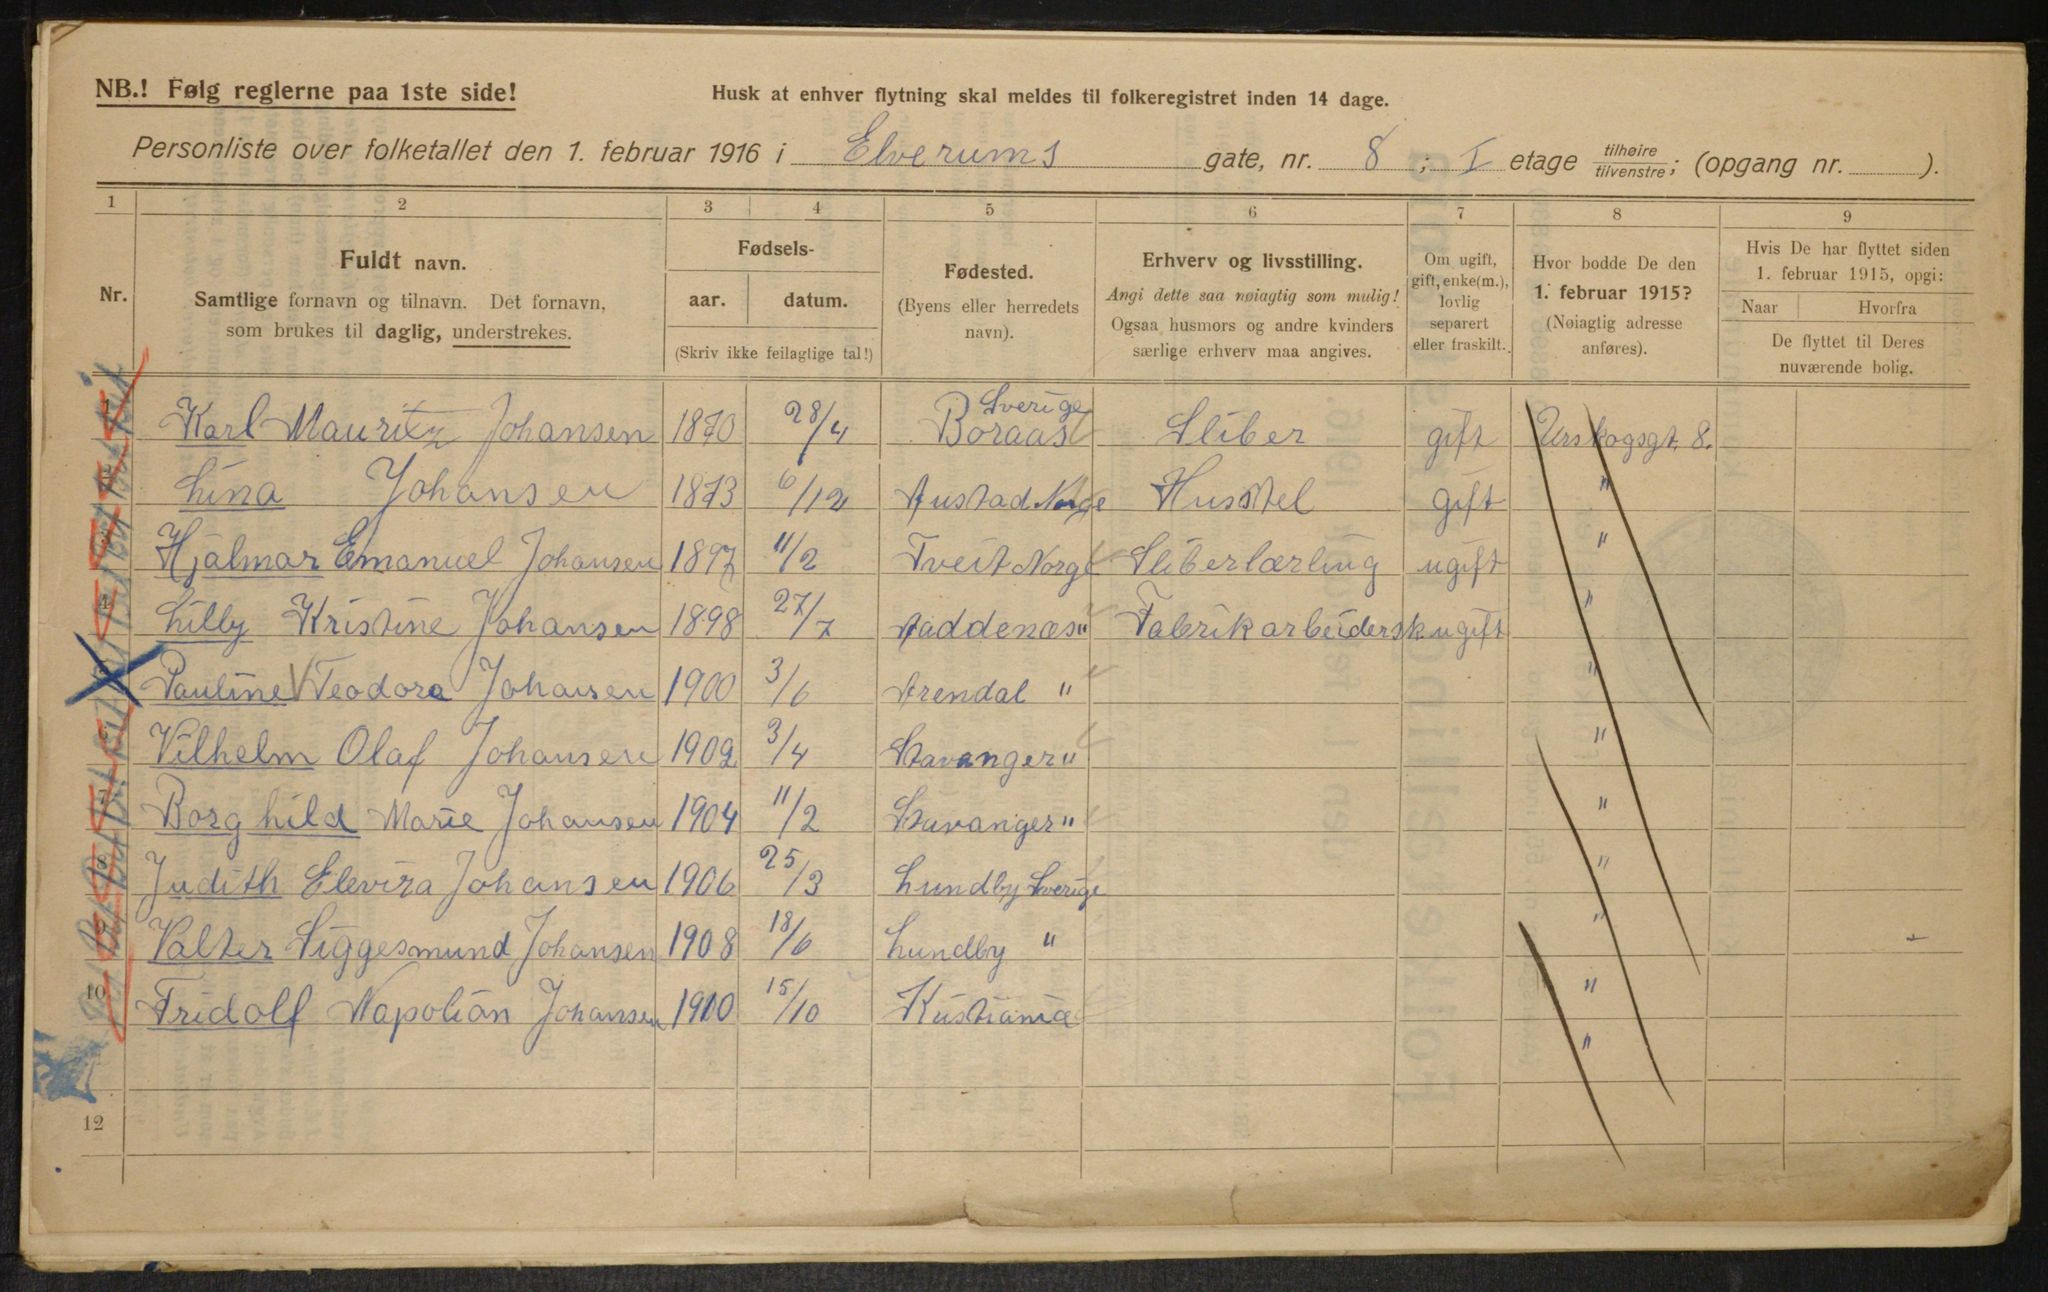 NB.! Følg reglerne paa 1ste side!
Husk at enhver flytning skal meldes til folkeregistret inden 14 dage.
Personliste over folketallet den 1. februar 1916 i Elverums gate, nr. 8 ; I etage tilhøire/tilvenstre; (opgang nr. ).
1 2 3 4 5 6 7 8 9
Nr.
Fuldt navn.
Samtlige fornavn og tilnavn. Det fornavn,
som brukes til daglig, understrekes.
Fødsels-
aar. datum.
(Skriv ikke feilagtige tal!)
Fødested.
(Byens eller herredets
navn).
Erhverv og livsstilling.
Angi dette saa nøiagtig som mulig!
Ogsaa husmors og andre kvinders
særlige erhverv maa angives.
Om ugift,
gift, enke(m.),
lovlig
separert
eller fraskilt.
Hvor bodde De den
1. februar 1915?
(Nøiagtig adresse
anføres).
Hvis De har flyttet siden
1. februar 1915, opgi:
Naar Hvorfra
De flyttet til Deres
nuværende bolig.
Karl Mauritz Johansen 1870 28/4 Boraas Sverige Sliber gift Urskogsgt. 8.
Lina Johansen 1873 6/12 Austad Norge Husstel gift "
3 Hjalmar Emanuel Johansen 1897 11/2 Tveit Norge Sliberlærling ugift "
4 Lilly Kristine Johansen 1898 27/7 " Fabrikarbeidersk ugift "
Pauline Teodora Johansen 1900 3/6 Arendal " "
Vilhelm Olaf Johansen 1902 3/4 Stavanger " "
7 Borghild Marie Johansen 1904 11/2 Stavanger " "
8 Judith Elevira Johansen 1906 25/3 Lundby Sverige "
Valter Siggesmund Johansen 1908 18/6 Lundby " "
10 Fridolf Napolion Johansen 1910 15/10 Kristiania "
"
12